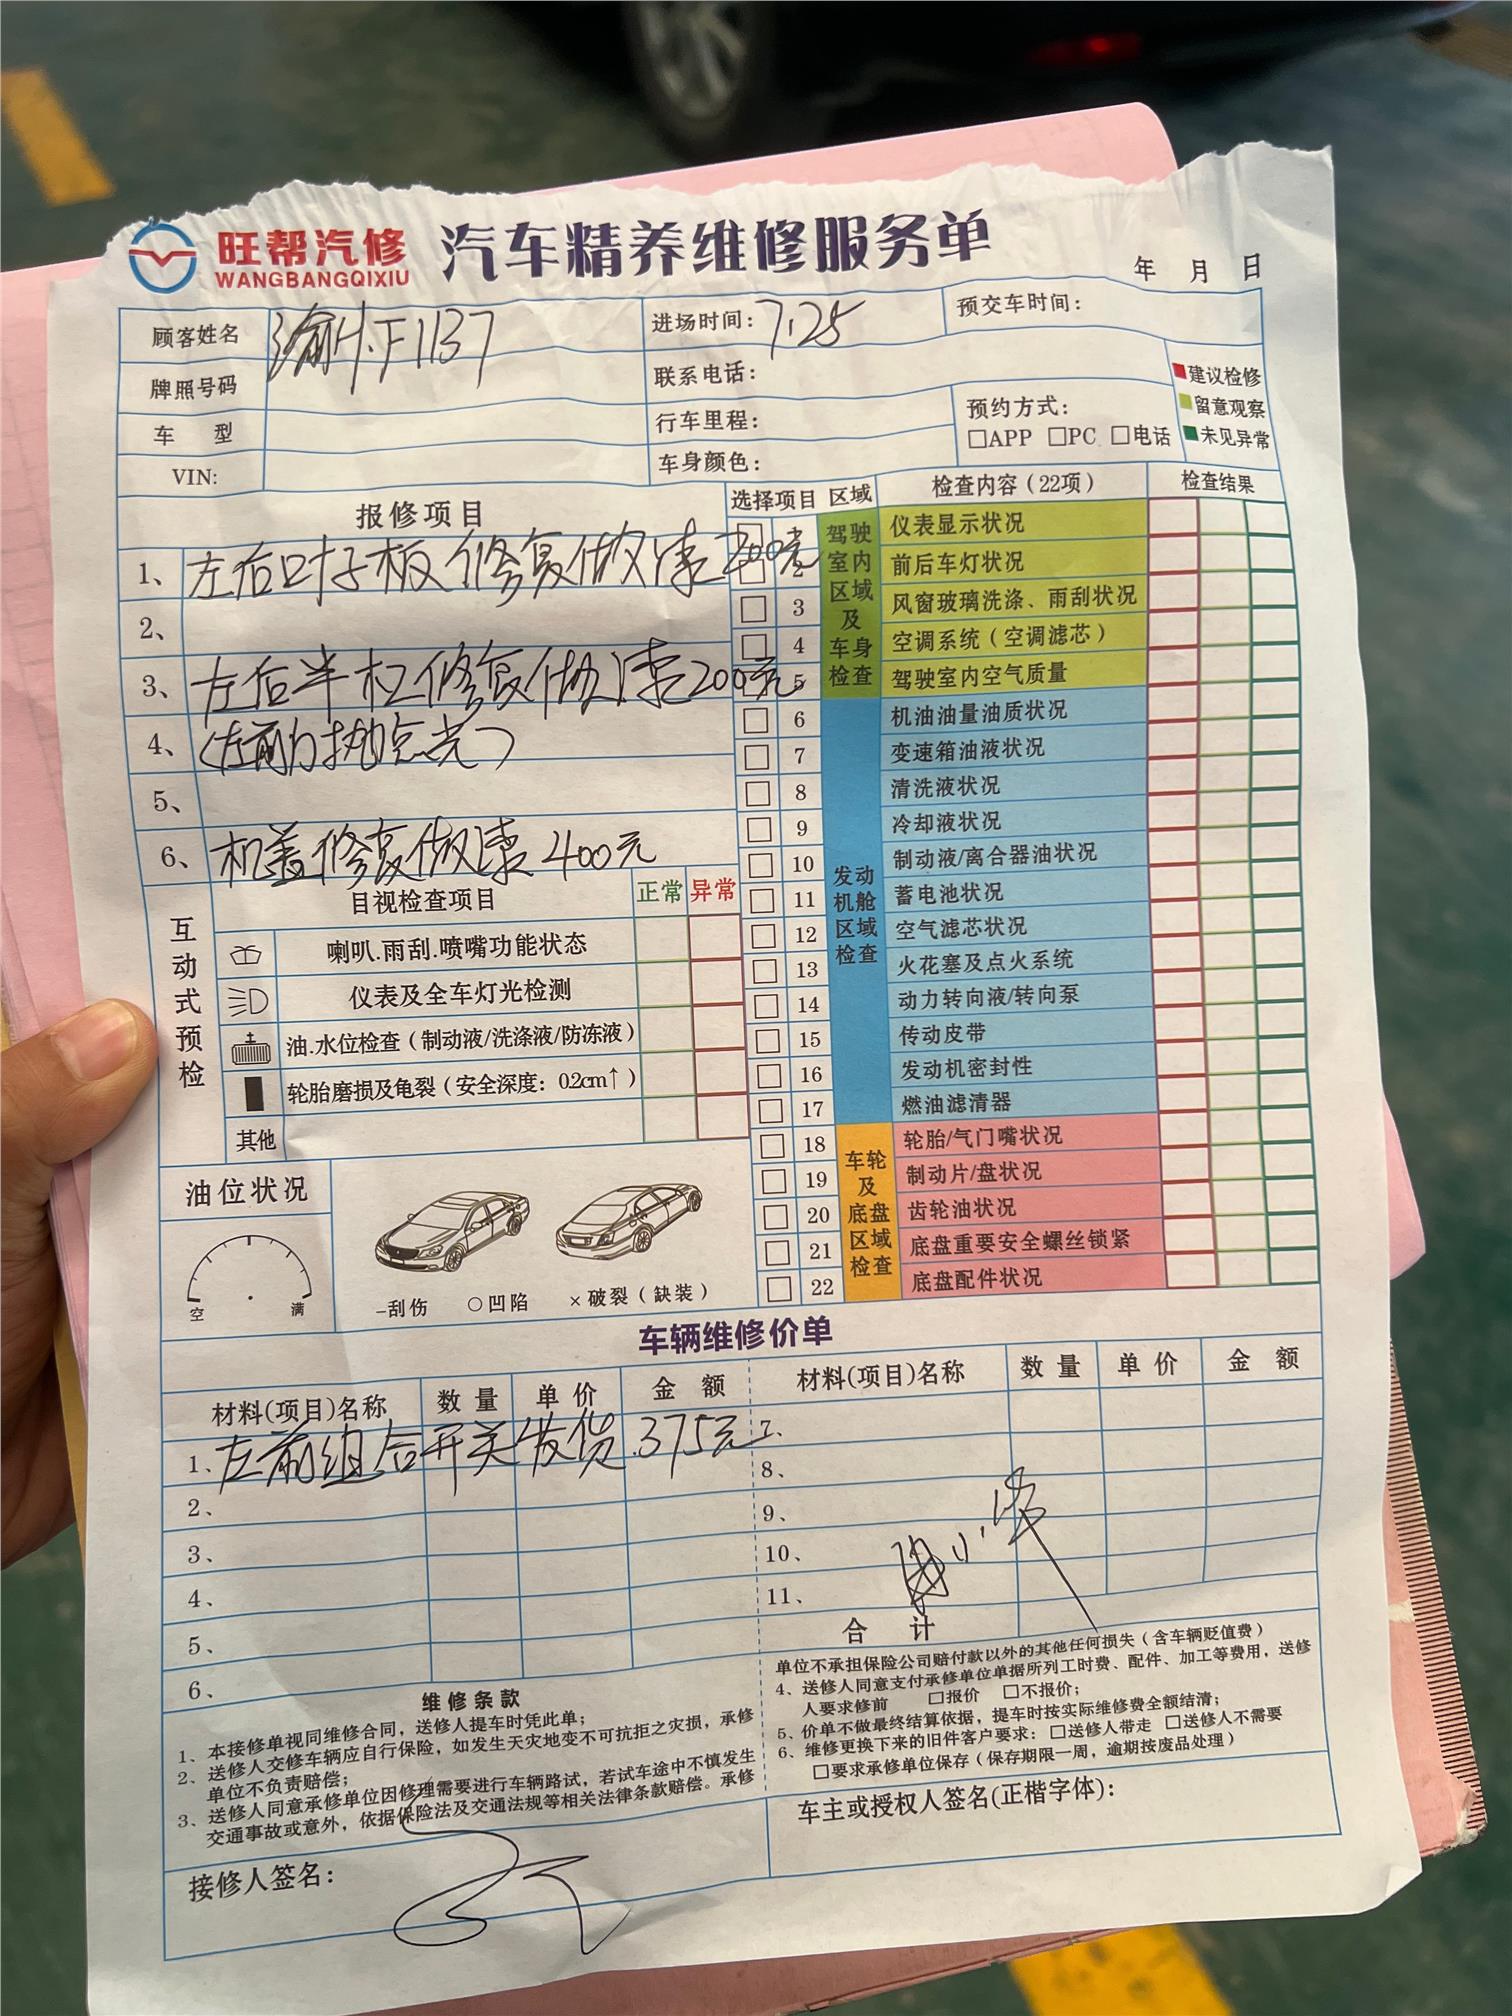 旺帮汽修 汽车精养维修服务单
WANGBANGQIXIU
年 月 日
顾客姓名 渝A.F1137 进场时间：7.25 预交车时间：
牌照号码 联系电话：
车 型 行车里程：
VIN: 车身颜色：
预约方式：
□APP □PC □电话
建议检修
留意观察
未见异常
报修项目
1、左后叶子板修复做漆200元
2、
3、左后半杠修复做漆200元
4、(左前抛点光)
5、
6、机盖修复做漆400元
互动式预检
目视检查项目 正常 异常
喇叭.雨刮.喷嘴功能状态
仪表及全车灯光检测
油.水位检查（制动液/洗涤液/防冻液）
轮胎磨损及龟裂（安全深度：0.2cm↑）
其他
油位状况
空 满
-刮伤 ○凹陷 ×破裂（缺装）
选择项目 区域 检查内容（22项） 检查结果
驾驶室内区域及车身检查
仪表显示状况
前后车灯状况
3 风窗玻璃洗涤、雨刮状况
4 空调系统（空调滤芯）
5 驾驶室内空气质量
发动机舱区域检查
6 机油油量油质状况
7 变速箱油液状况
8 清洗液状况
9 冷却液状况
10 制动液/离合器油状况
11 蓄电池状况
12 空气滤芯状况
13 火花塞及点火系统
14 动力转向液/转向泵
15 传动皮带
16 发动机密封性
17 燃油滤清器
车轮及底盘区域检查
18 轮胎/气门嘴状况
19 制动片/盘状况
20 齿轮油状况
21 底盘重要安全螺丝锁紧
22 底盘配件状况
车辆维修价单
材料(项目)名称 数量 单价 金额 材料(项目)名称 数量 单价 金额
1、左前组合开关发货 375元 7、
2、 8、
3、 9、
4、 10、
5、 11、
6、 合 计
维修条款
1、本接修单视同维修合同，送修人提车时凭此单；
2、送修人交修车辆应自行保险，如发生天灾地变不可抗拒之灾损，承修
单位不负责赔偿；
3、送修人同意承修单位因修理需要进行车辆路试，若试车途中不慎发生
交通事故或意外，依据保险法及交通法规等相关法律条款赔偿。承修
单位不承担保险公司赔付款以外的其他任何损失（含车辆贬值费）
4、送修人同意支付承修单位单据所列工时费、配件、加工等费用，送修
人要求修前 □报价 □不报价；
5、价单不做最终结算依据，提车时按实际维修费全额结清；
6、维修更换下来的旧件客户要求：□送修人带走 □送修人不需要
□要求承修单位保存（保存期限一周，逾期按废品处理）
接修人签名：
车主或授权人签名(正楷字体)：